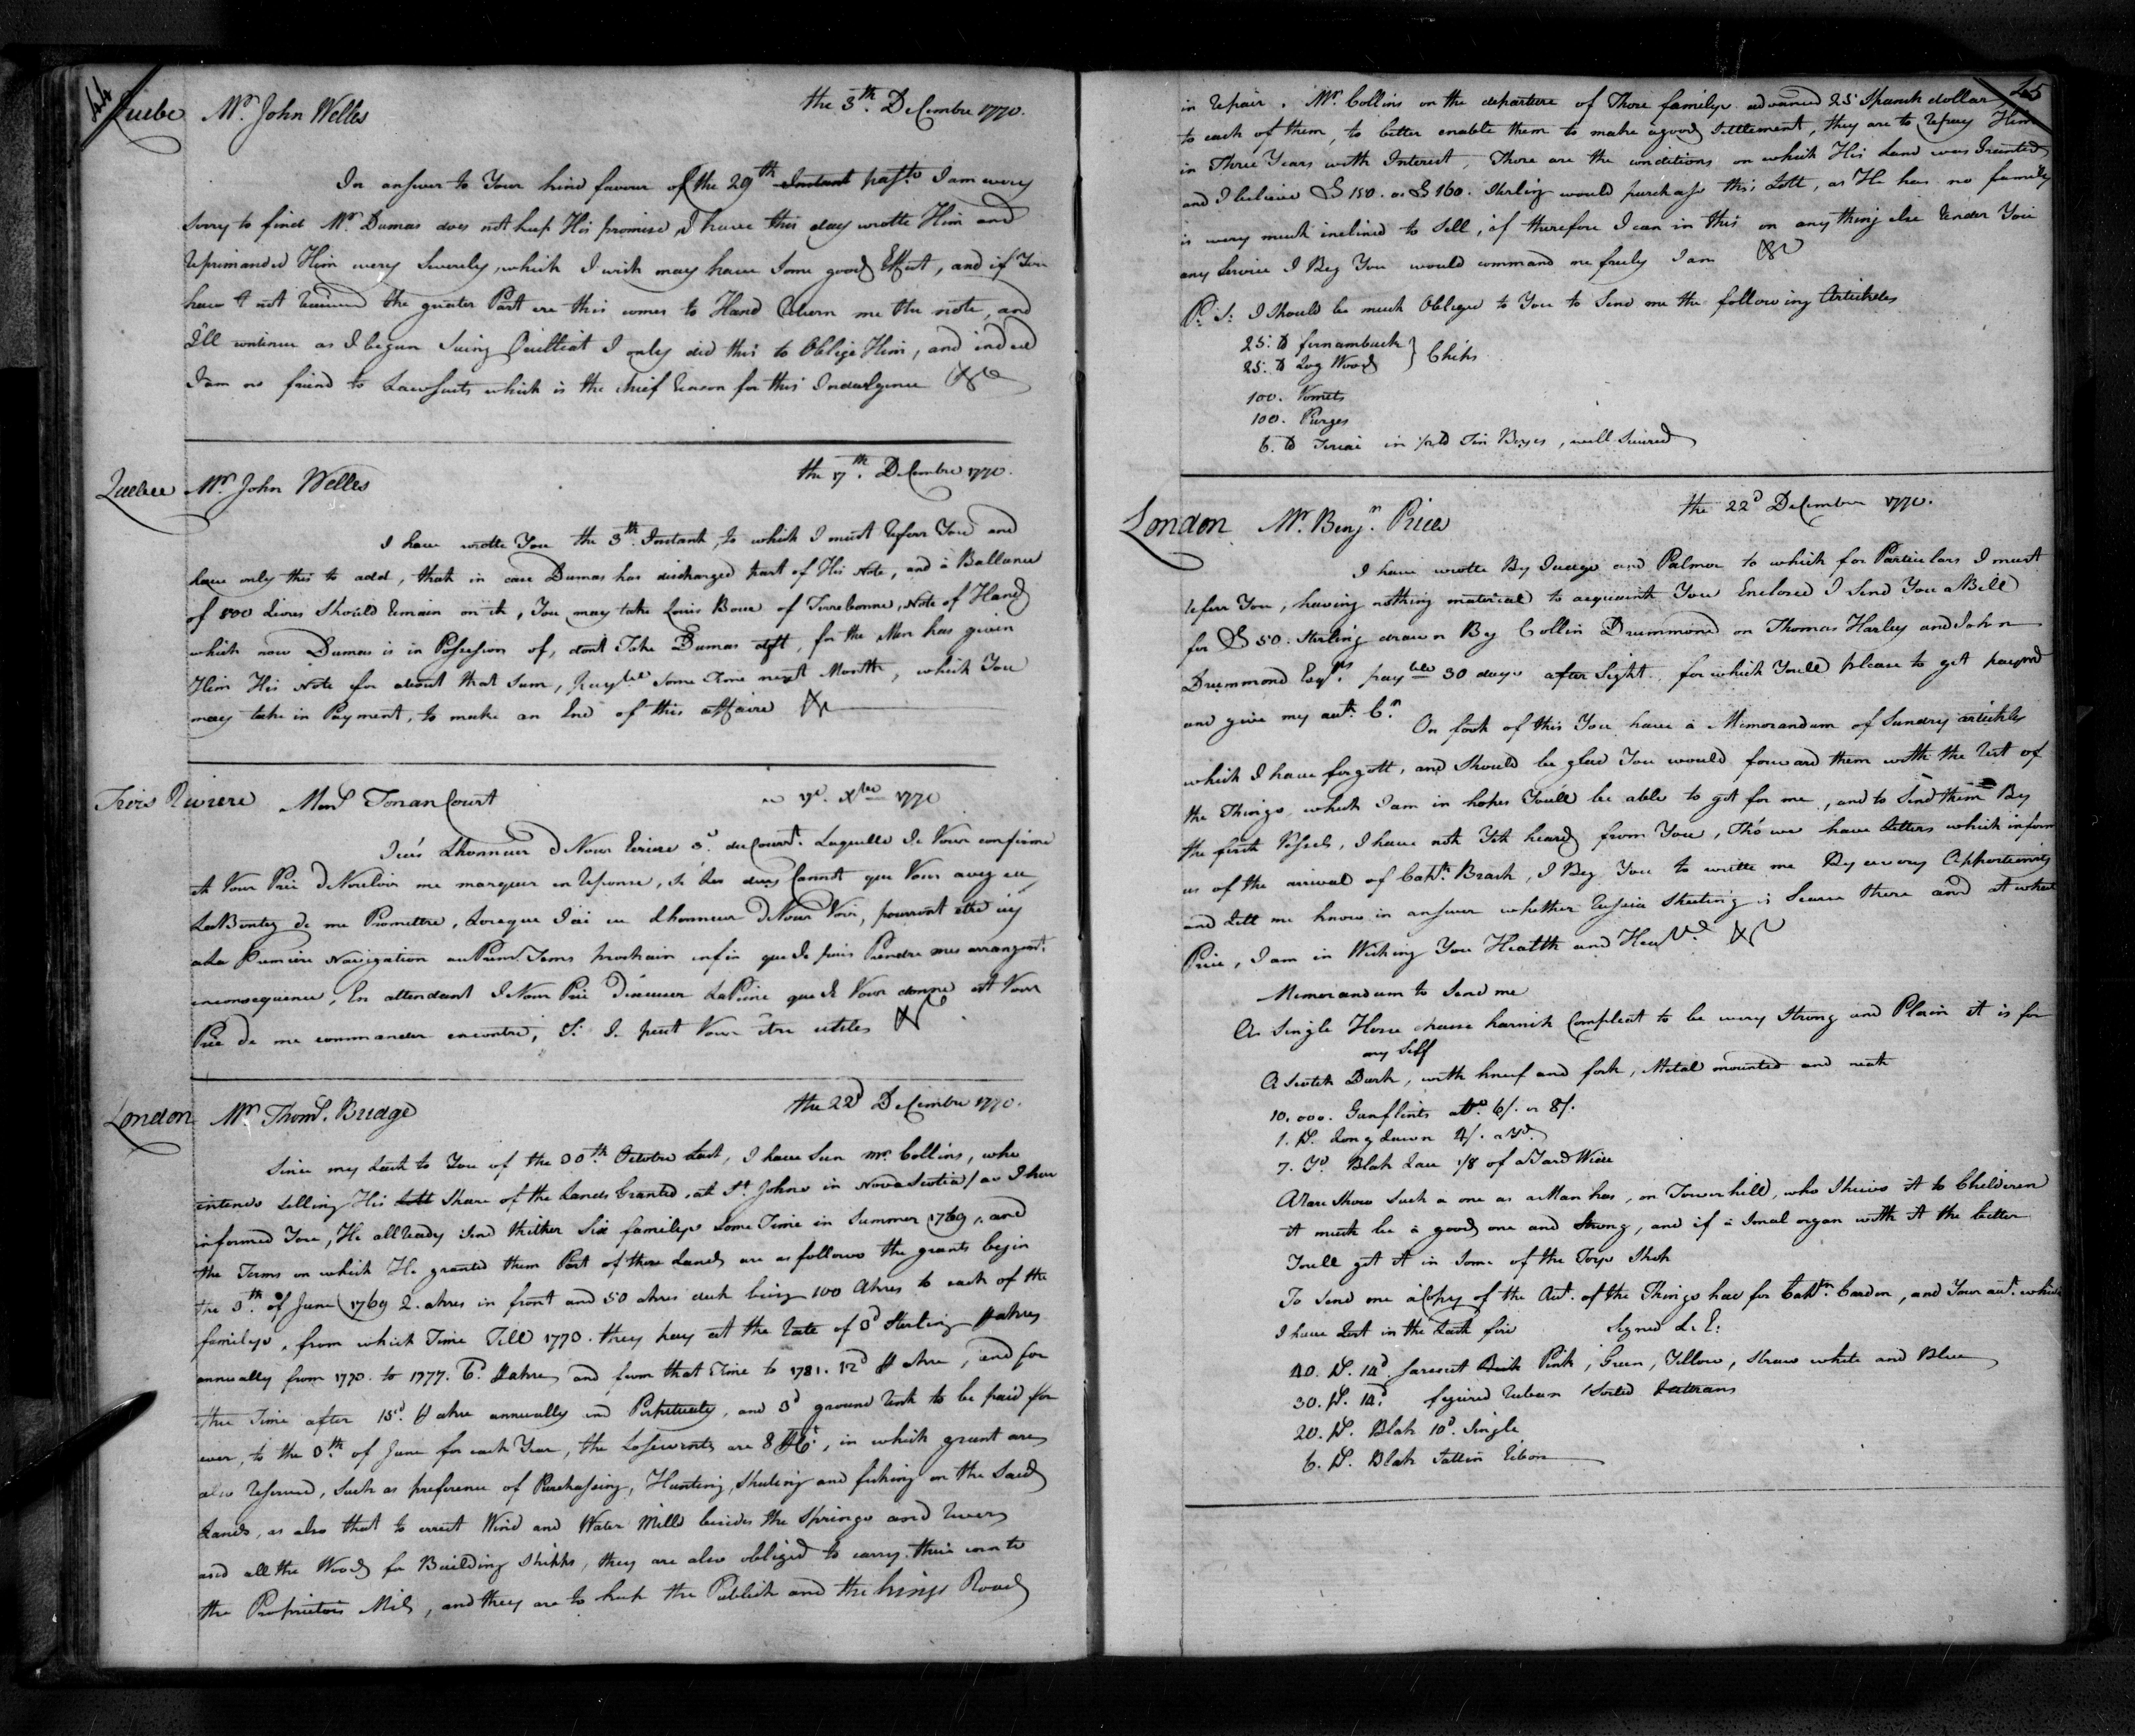 44
Quebe Mr. John Welles the 3th. DeCembre 1770.
In answer to Your kind favour of the 29th Instant past. I am wery
sorry to find Mr. Dumas does not keep His promise, I have this day wrotte Him and
Reprimanded Him wery Severely, which I wish may have Some good Effect, and if You
have not Received the greater Part ere this comes to Hand Return me the note, and
I'll continue as I begun Suing I only did this to Oblige Him, and indeed
I am no friend to LawSuits which is the chief Reason for this Indulgence &c
Quebec Mr. John Welles the 17th. DeCembre 1770.
I have wrotte You the 3th. Instant, to which I must Referr You and
have only this to add, that in case Dumas has discharged part of His Note, and a Ballance
of 800 Livres Should Remain on it, You may take Louis Boue of Terrebonne, Note of Hand
which now Dumas is in Possession of, dont Take Dumas dft, for the Man has givin
Him His Note for about that Sum, payble Some Time next Month, which You
may take in Payment, to make an End of this affaire &c
Trois Riviere Monsr. TonanCourt ce 17e. Xbre 1770
J'eus Lhonneur de Vous Ecrire 3e. du Court. Laquelle Je Vous confirme
et Vous Prie de Vouloir me marquer en Reponse, Si Les deux Cannots que Vous avez eu
La Bontez de me Promettre, Lorsque J'ai eu Lhonneur de Vous Voir, pourront etre icy
a La Premiere Navigation au Printems prochain enfin que Je puis Prendre mes arrangemt.
enconsequence, En attendant Je Vous Prie d'excuser La Peine que Je Vous donne et Vous
Prie de me commander encontre, Si Je peut Vous être utiles &c
London Mr. Thoms. Bridge the 22d DeCembre 1770.
Since my Last to You of the 30th. Octobre Last, I have Seen Mr. Collins, who
intends Selling His Lott Share of the Lands Granted, at St. Johns in Nova Scotia / as I have
informed You, He allready Send thither Six familys Some Time in Summer 1769, and
the Terms on which He granted them Part of those Lands are as follows the grants begin
the 3th. of June 1769 2. akres in front and 50 akres deek being 100 Akres to each of the
familys, from which Time Till 1773. they pay at the Rate of 3d Sterling p akres
annually from 1773. to 1777. 6d. p akre, and from that Time to 1781. 12d p akre, and for
the Time after 15d. p akre annually and Perpetualy, and 3d ground Rent to be paid for
ever, to the 3th. of June for each Year, the are 8 p Ct., in which grant are
also Reserved, Such as preference of Purchassing, Hunting, Shuting and fishing on the Said
Lands, as also that to errect Wind and Water Mills besides the Springs and Rivers
and all the Wood for Building Shipps, they are also obliged to carry their corn to
the Proprietors Mils, and they are to keep the Publick and the Kings Road
45
in Repair. Mr. Collins on the departure of Those familys advanced 25 Spanish dollars
to each of them, to better enable them to make a good Settlement, they are to Repay Him
in Three Years with Interest, Those are the conditions on which His Land was Granted
and I believe £ 150. or £ 160. Sterling would purchase this Lott, as He has no family
is wery much inclined to Sell, if therefore I can in this or any thing else Render You
any Service I Beg You would command me freely I am &c
P: S: I Should be much Obliged to You to Send me the following Artickles
25. lb fernambuck } Chips
25. lb Log Wood
100. Vomits
100. Purges
6. lb Teriac in 1/2 lb Tin Boxes, well Secured
London Mr. Benjn. Price the 22d DeCembre 1770.
I have wrotte By Judge and Palmer to which for Particulars I must
Referr You, having nothing material to acquaint You Enclosed I Send You a Bill
for £ 50. Sterling drawn By Collin Drummond on Thomas Harley and John
Drummond Esqrs. payble 30 days after Sight, for which Youll please to get payed
and give my aut. Cr. On foot of this You have a Memorandum of Sundry artickles
which I have forgott, and Should be glad You would forward them with the Rest of
the Things which I am in hopes Youll be able to get for me, and to Send them By
the first Vessels, I have not Yet heard from You, Tho we have Letters which inform
us of the arrival of Capt. Brash, I Beg You to write me By ewery Opportunity
and Lett me know in answer whether Russia Sheeting is Scarce there and at what
Price, I am in Wishing You Health and &c
Memorandum to Send me
A Single Horse chaise harnish Compleat to be wery Strong and Plain it is for
my Self
A Scotch Durk, with knief and fork, Metal mounted and neat
10.000. Gunflints at 6/. or 8/.
1. Ps. Long Lawn 4/. a Yd.
7. Yd Blak Lace 1/8 of a Yard Wide
A Rare Show Such a one as a Man has, on Tower hill, who Shews it to Childeren
it must be a good one and Strong, and if a Smal organ with it the better
Youll get it in Some of the Toys Shop
To Send me a Copy of the Aut. of the Things had for Captn. Cardon, and Your aut. which
I have Lost in the Last fire Signed L: E:
40. Ps. 14d. Sarsenet Pink, Green, Yellow, Straw white and Blue
30. Ps. 14d. figured Ruban Sorted
20. Ps. Blak 10d. Single
6. Ps. Blak Sattin Ribon